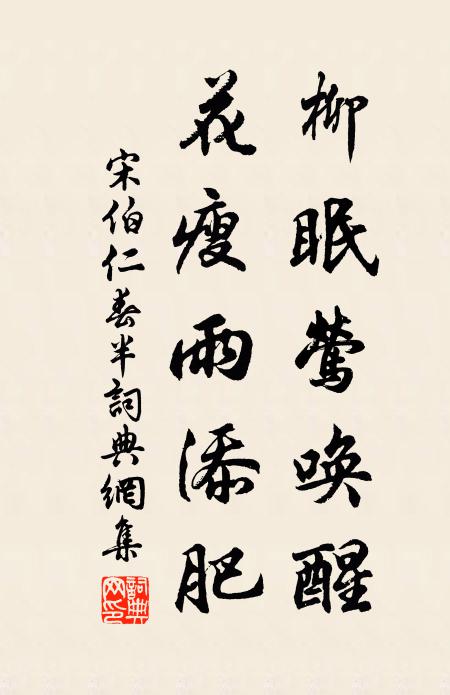 柳眠鶯喚醒
花瘦雨添肥
宋伯仁春半詞典網集
詞典網印